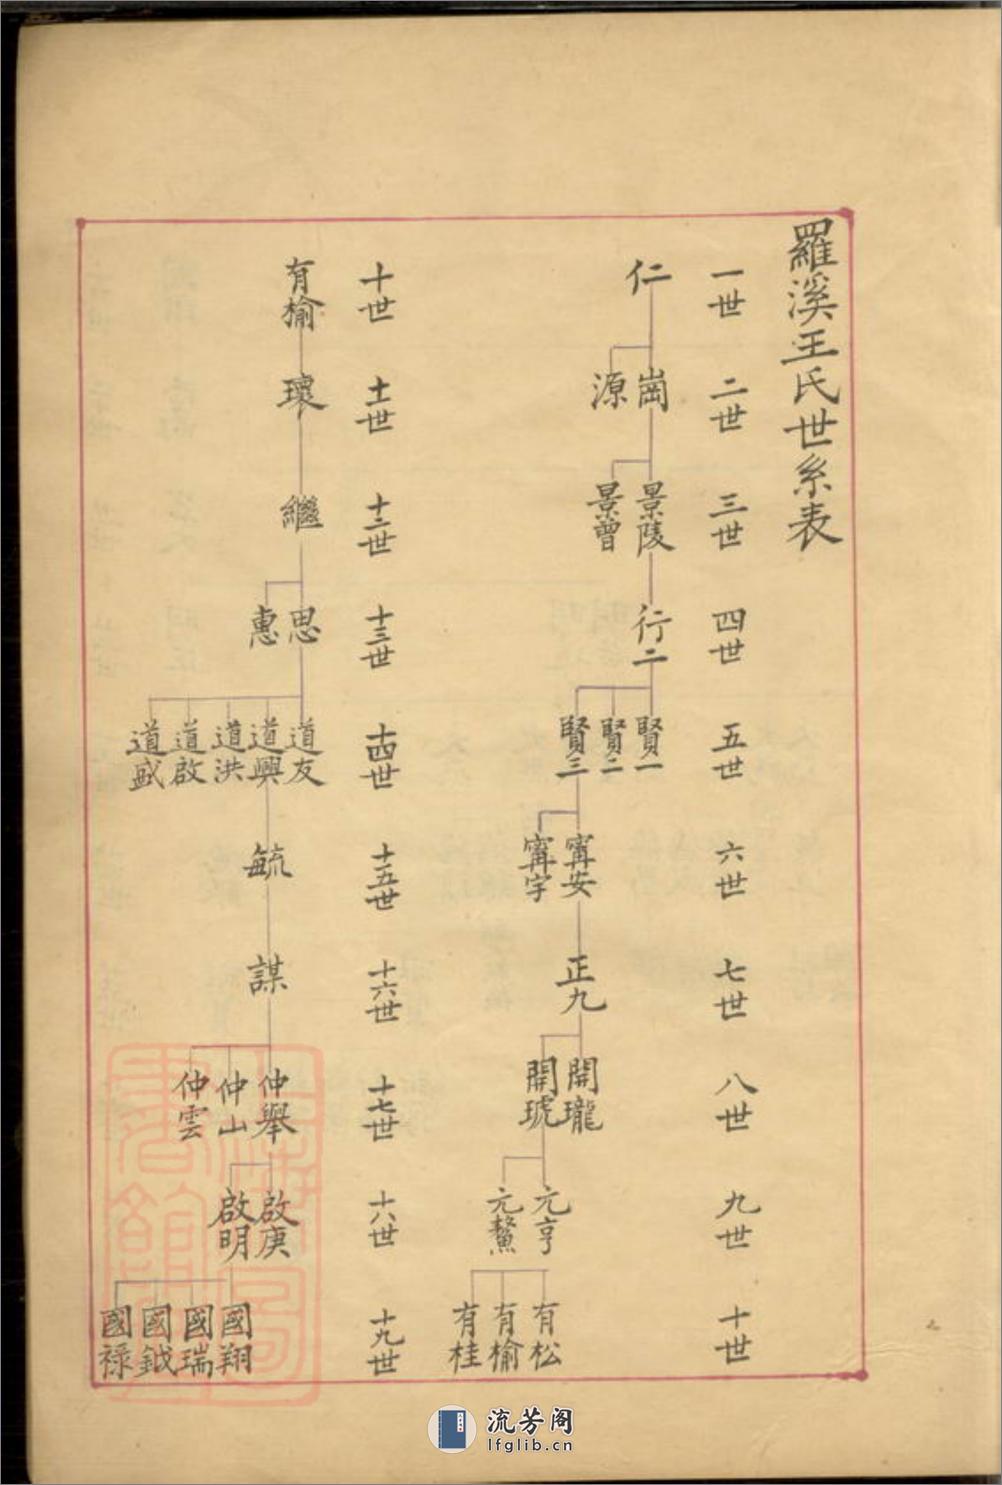 羅溪王氏世系表
一世 仁
二世 崗 源
三世 景陵 景曾
四世 行二
五世 賢一 賢二 賢三
六世 甯安 甯宇
七世 正九
八世 開瓏 開琥
九世 元亨 元鰲
十世 有松 有榆 有桂
十世 有榆
十一世 瓌
十二世 繼
十三世 思 惠
十四世 道友 道興 道洪 道啟 道盛
十五世 毓
十六世 謀
十七世 仲舉 仲山 仲雲
十八世 啟庚 啟明
十九世 國翔 國瑞 國鉞 國祿
流芳阁
lfglib.cn